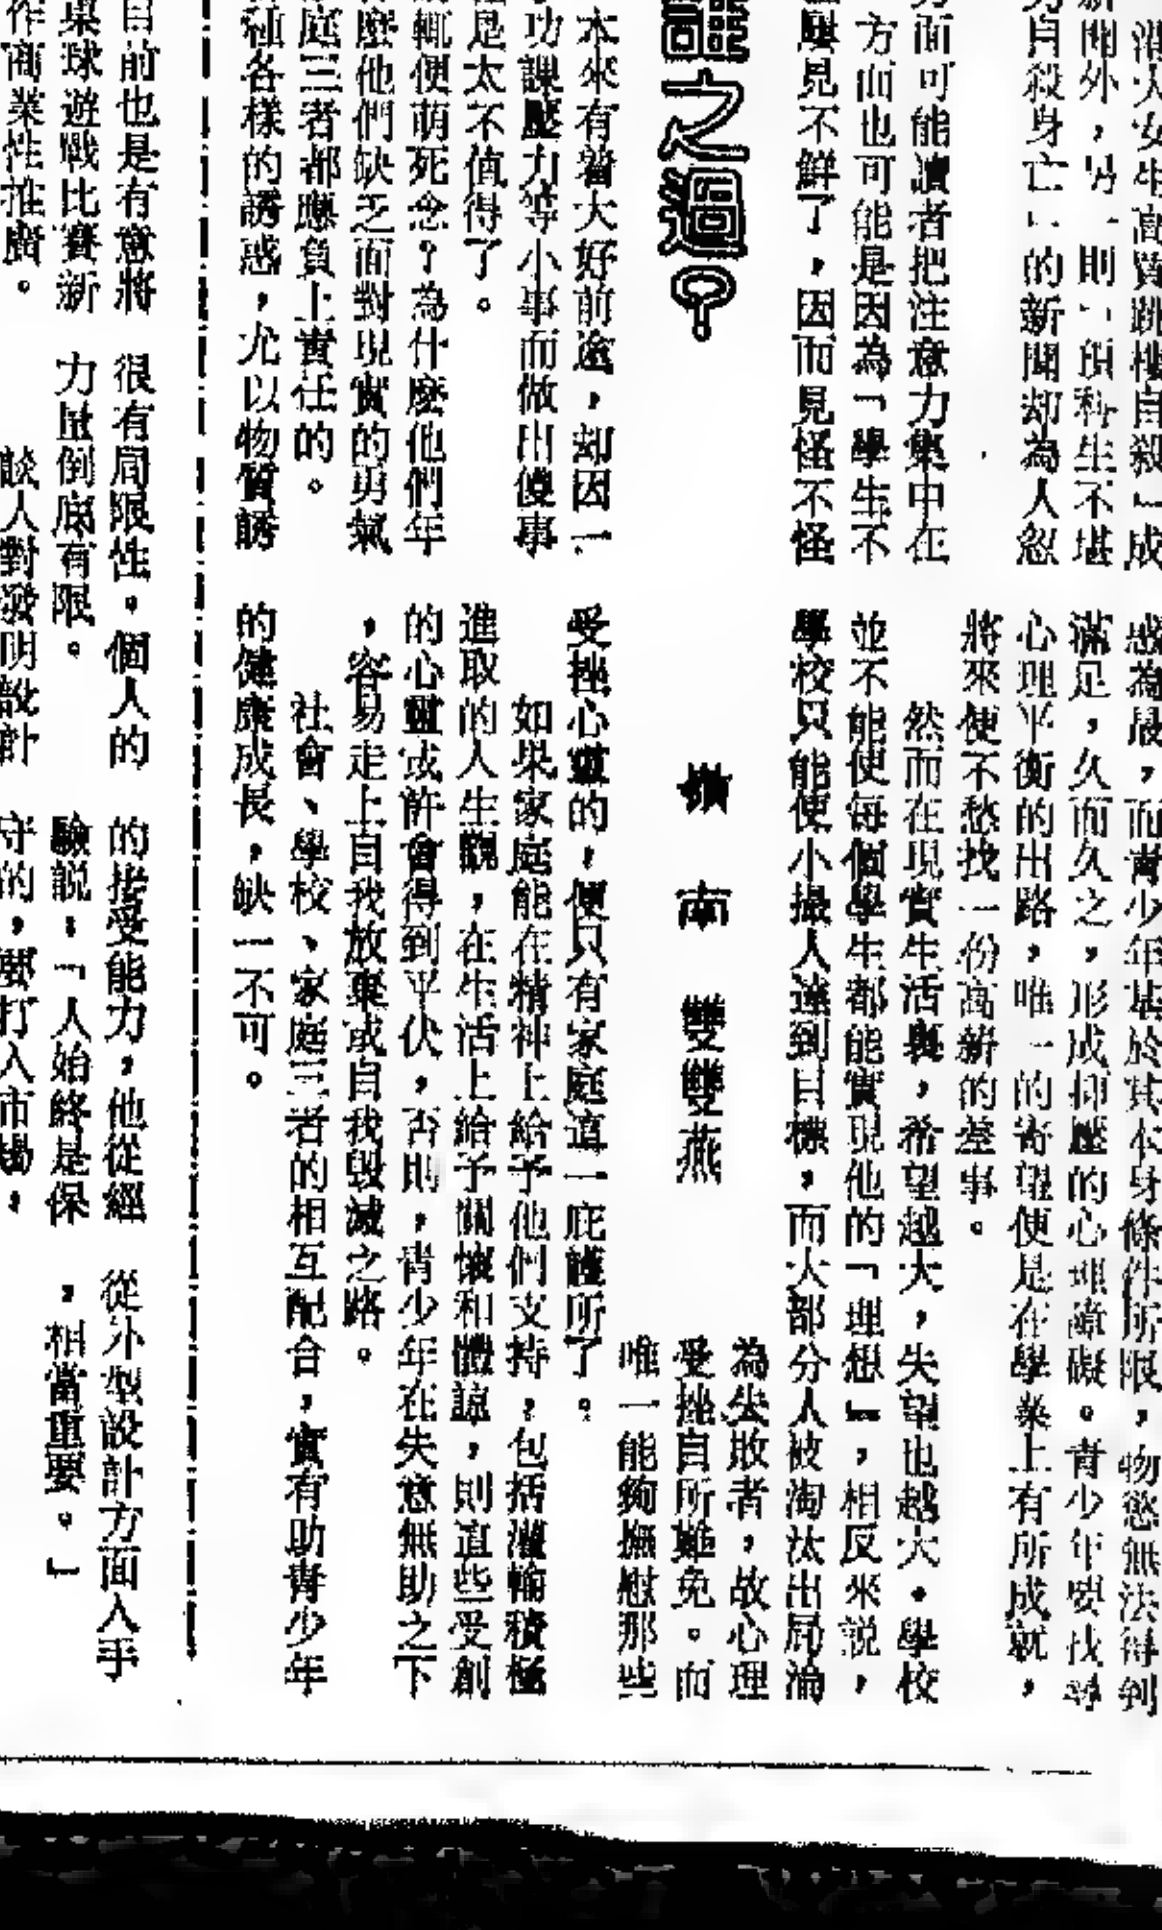 女生高質跳樓自殺」成
新聞外，另一則「預科生不堪
自殺身亡」的新聞却為人忽
方面可能讀者把注意力集中在
方面也可能是因為「學生不
屢見不鮮了，因而見怪不怪
誰之過？
嶺南 雙雙燕
本來有着大好前途，却因一
功課壓力等小事而做出傻事
是太不值得了。
輒便萌死念？為什麼他們年
麼他們缺乏面對現實的勇氣
庭三者都應負上責任的。
種各樣的誘惑，尤以物質誘
惑為最，而青少年基於其本身條件所限，物慾無法得到
滿足，久而久之，形成抑壓的心理障礙。青少年要找尋
心理平衡的出路，唯一的寄望便是在學業上有所成就，
將來便不愁找一份高薪的差事。
然而在現實生活裏，希望越大，失望也越大。學校
並不能使每個學生都能實現他的「理想」，相反來説，
學校只能使小撮人達到目標，而大部分人被淘汰出局淪
為失敗者，故心理
受挫自所難免。而
唯一能夠撫慰那些
受挫心靈的，便只有家庭這一庇護所了。
如果家庭能在精神上給予他們支持，包括灌輸積極
進取的人生觀，在生活上給予關懷和體諒，則這些受創
的心靈或許會得到平伏，否則，青少年在失意無助之下
，容易走上自我放棄或自我毀滅之路。
社會、學校、家庭三者的相互配合，實有助青少年
的健康成長，缺一不可。
目前也是有意將
桌球遊戲比賽新
作商業性推廣。
很有局限性。個人的
力量倒底有限。
談人對發明設計
的接受能力，他從經
驗説：「人始終是保
守的，要打入市場，
從外型設計方面入手
，相當重要。」